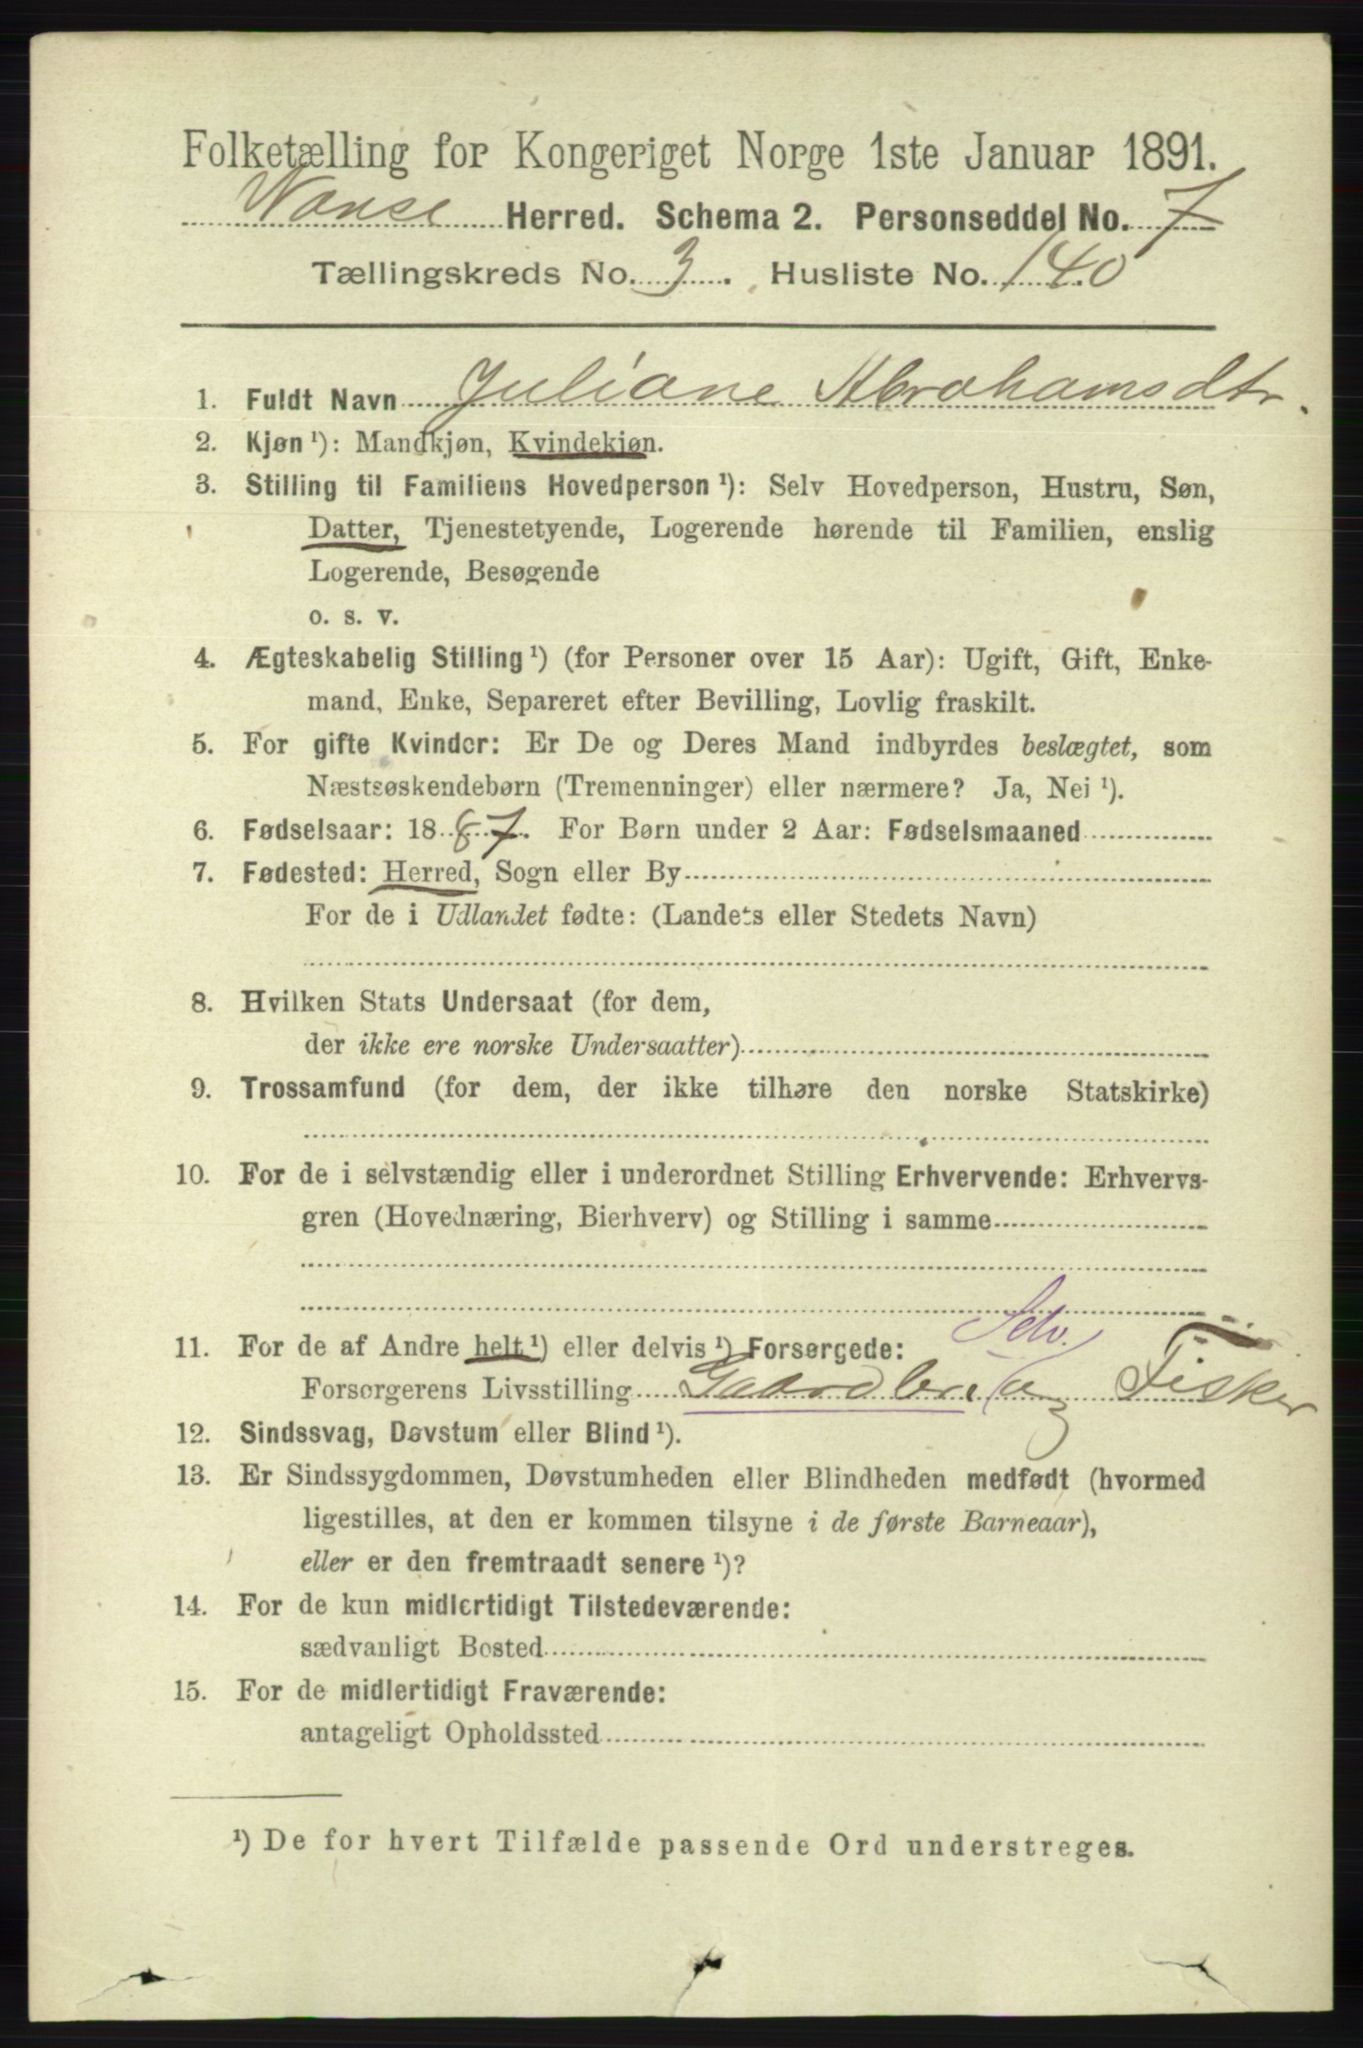 Folketælling for Kongeriget Norge 1ste Januar 1891.
Vanse Herred. Schema 2. Personseddel No. 7
Tællingskreds No. 3. Husliste No. 140
1. Fuldt Navn Juliane Abrahamsdtr.
2. Kjøn ¹): Mandkjøn, Kvindekjøn.
3. Stilling til Familiens Hovedperson ¹): Selv Hovedperson, Hustru, Søn,
Datter, Tjenestetyende, Logerende hørende til Familien, enslig
Logerende, Besøgende
o. s. v.
4. Ægteskabelig Stilling ¹) (for Personer over 15 Aar): Ugift, Gift, Enke-
mand, Enke, Separeret efter Bevilling, Lovlig fraskilt.
5. For gifte Kvinder: Er De og Deres Mand indbyrdes beslægtet, som
Næstsøskendebørn (Tremenninger) eller nærmere? Ja, Nei ¹).
6. Fødselsaar: 1887. For Børn under 2 Aar: Fødselsmaaned
7. Fødested: Herred, Sogn eller By
For de i Udlandet fødte: (Landets eller Stedets Navn)
8. Hvilken Stats Undersaat (for dem,
der ikke ere norske Undersaatter)
9. Trossamfund (for dem, der ikke tilhøre den norske Statskirke)
10. For de i selvstændig eller i underordnet Stilling Erhvervende: Erhvervs-
gren (Hovednæring, Bierhverv) og Stilling i samme
Selv.
11. For de af Andre helt ¹) eller delvis ¹) Forsørgede:
Forsørgerens Livsstilling Gaardbr. og Fisker
12. Sindssvag, Døvstum eller Blind ¹).
13. Er Sindssygdommen, Døvstumheden eller Blindheden medfødt (hvormed
ligestilles, at den er kommen tilsyne i de første Barneaar),
eller er den fremtraadt senere ¹)?
14. For de kun midlertidigt Tilstedeværende:
sædvanligt Bosted
15. For de midlertidigt Fraværende:
antageligt Opholdssted
¹) De for hvert Tilfælde passende Ord understreges.